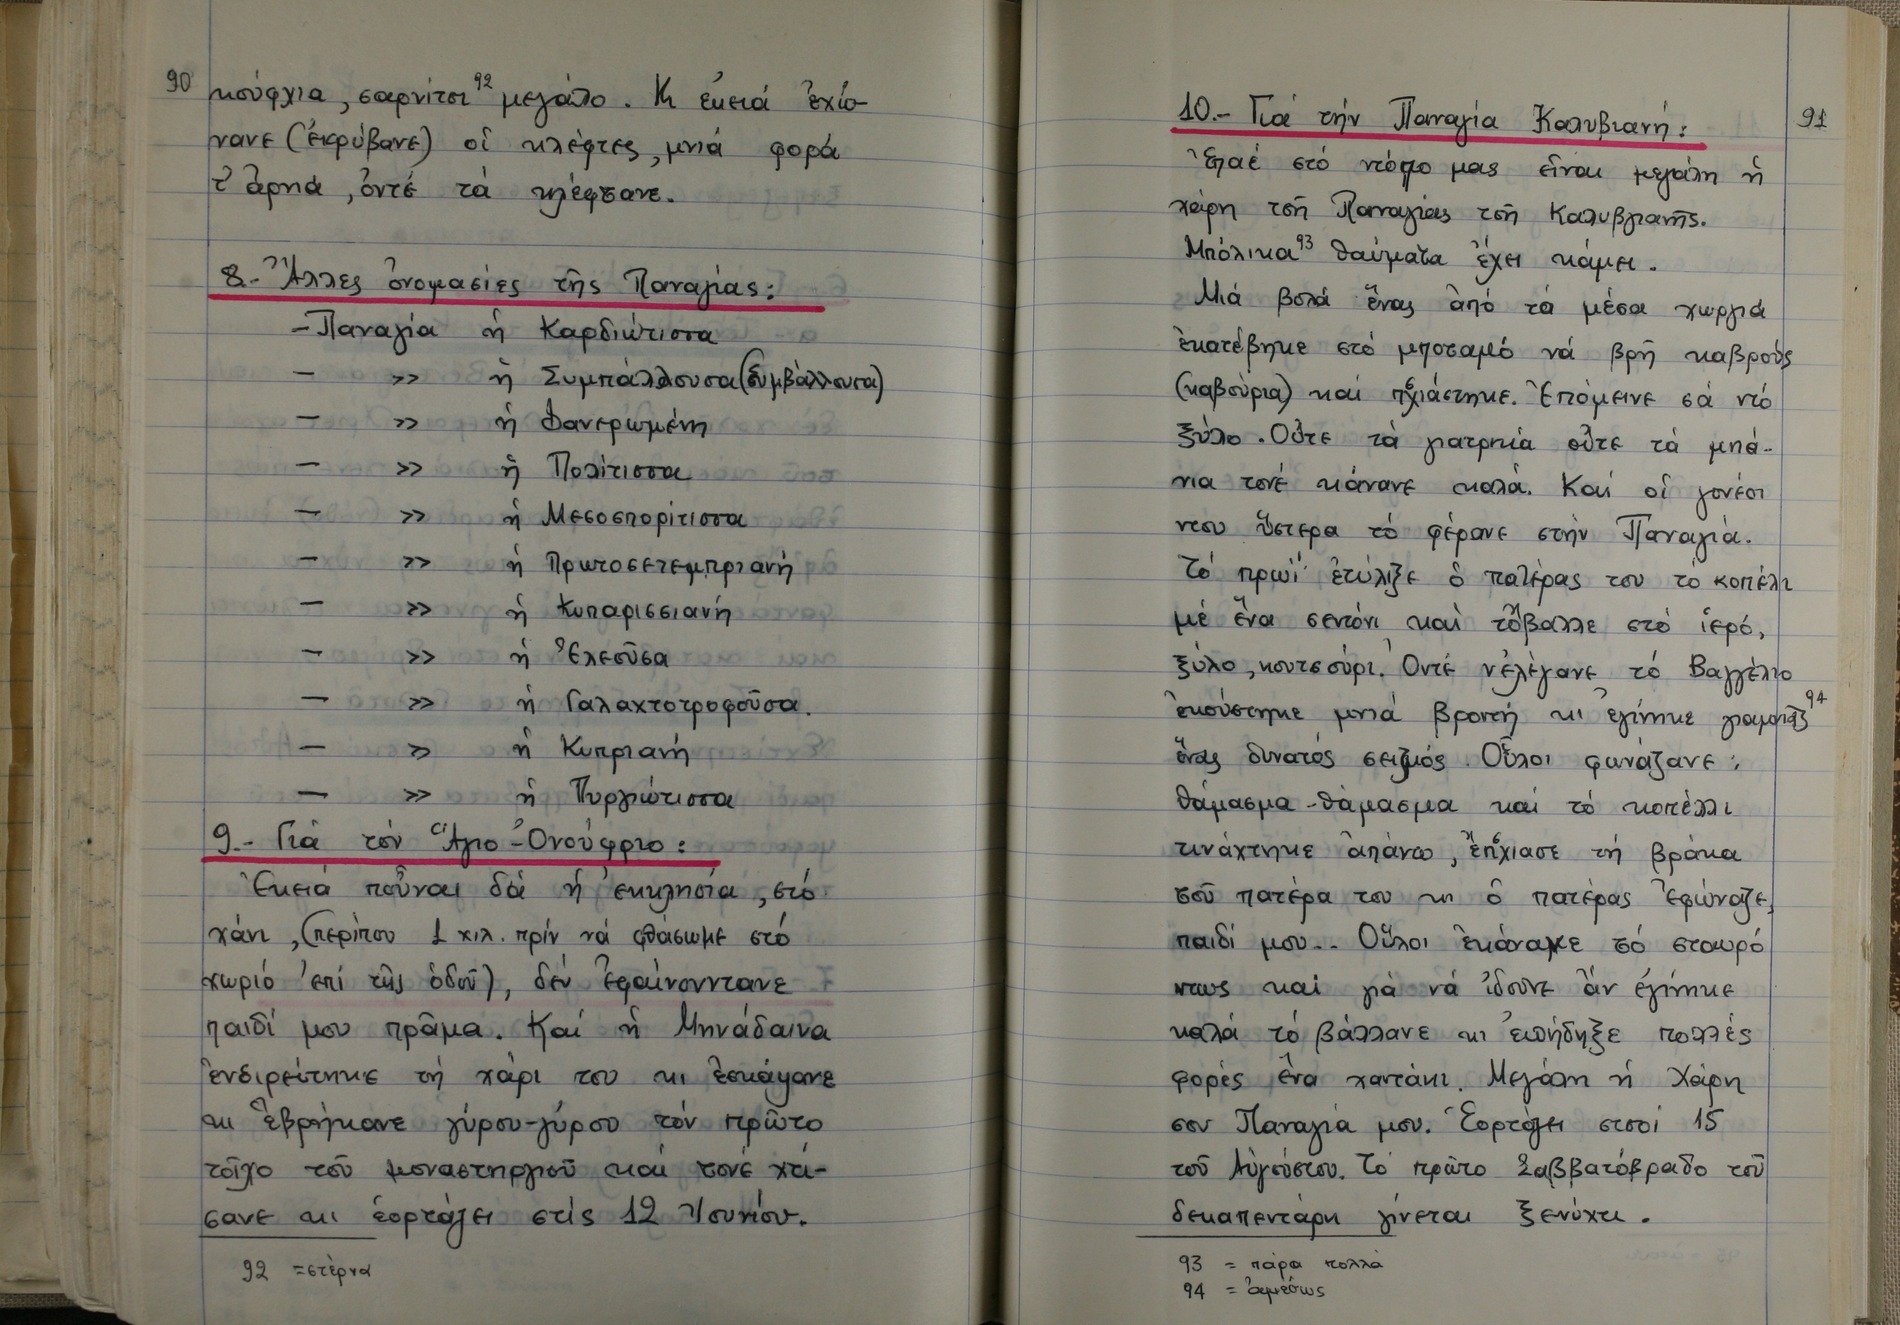 90
κούφχια, σαρνίτσι⁹² μεγάλο. Κι ἐκειά ἐχώ-
νανε (ἐκρύβανε) οἱ κλέφτες, μνιά φορά
τ' ἀρνιά, ὀντέ τά κλέφτανε.
8.- Ἄλλες ὀνομασίες τῆς Παναγίας:
- Παναγία ἡ Καρδιώτισσα
- » ἡ Συμπάλλουσα (Συμβάλλουσα)
- » ἡ Φανερωμένη
- » ἡ Πολίτισσα
- » ἡ Μεσοσπορίτισσα
- » ἡ Πρωτοσετεμπριανή
- » ἡ Κυπαρισσιανή
- » ἡ Ἐλεοῦσα
- » ἡ Γαλαχτοτροφοῦσα.
- » ἡ Κυπριανή
- » ἡ Πυργιώτισσα
9.- Γιά τόν Ἅγιο-Ὀνούφριο:
Ἐκειά ποὖναι δά ἡ ἐκκλησία, στό
χάνι, (περίπου 1 χιλ. πρίν νά φθάσωμε στό
χωριό ἐπί τῆς ὁδοῦ), δέν ἐφαίνουντανε
παιδί μου πρᾶμα. Καί ἡ Μηνάδαινα
ἐνδιρεύτηκε τή χάρι του κι ἐσκάψανε
κι ἐβρήκανε γύρου-γύρου τόν πρῶτο
τοῖχο τοῦ μοναστηργιοῦ καί τονέ χτί-
σανε κι ἑορτάζει στίς 12 Ἰουνίου.
92 = στέρνα
91
10.- Γιά τήν Παναγία Καλυβιανή:
Ἐπαέ στό ντόπο μας εἶναι μεγάλη ἡ
χάρη τσῆ Παναγίας τσῆ Καλυβγιανῆς.
Μπόλικα⁹³ θαύματα ἔχει κάμει.
Μιά βολά ἕνας ἀπό τά μέσα χωργιά
ἐκατέβηκε στό μποταμό νά βρῆ καβρούς
(καβούρια) καί πχιάστηκε. Ἐπόμεινε σά ντό
ξύλο. Οὔτε τά γιατρικά οὔτε τά μπά-
νια τονέ κάνανε καλά. Καί οἱ γονέοι
ντου ὕστερα τό φέρανε στήν Παναγιά.
Τό πρωΐ ἐτύλιξε ὁ πατέρας του τό κοπέλι
μέ ἕνα σεντόνι καί τὄβαλλε στό ἱερό,
ξύλο, κουτσούρι. Ὀντέ νἐλέγανε τό Βαγγέλιο
ἐκούστηκε μνιά βροντή κι ἐγίνηκε γιαμιᾶς⁹⁴
ἕνας δυνατός σεισμός. Οὗλοι φωνάζανε:
θάμασμα-θάμασμα καί τό κοπέλλι
τινάχτηκε ἀπάνω, ἔπχιασε τή βράκα
τοῦ πατέρα του κι ὁ πατέρας ἐφώναζε,
παιδί μου.. Οὗλοι ἐκάναμε τό σταυρό
ντως καί γιά νά ἰδοῦνε ἄν ἐγίνηκε
καλά τό βάλλανε κι ἐπήδηξε πολλές
φορές ἕνα χαντάκι. Μεγάλη ἡ Χάρη
σου Παναγία μου. Ἑορτάζει στσοί 15
τοῦ Αὐγούστου. Τό πρῶτο Σαββατόβραδο τοῦ
δεκαπεντάρη γίνεται ξενύχτι.
93 = πάρα πολλά
94 = ἀμέσως